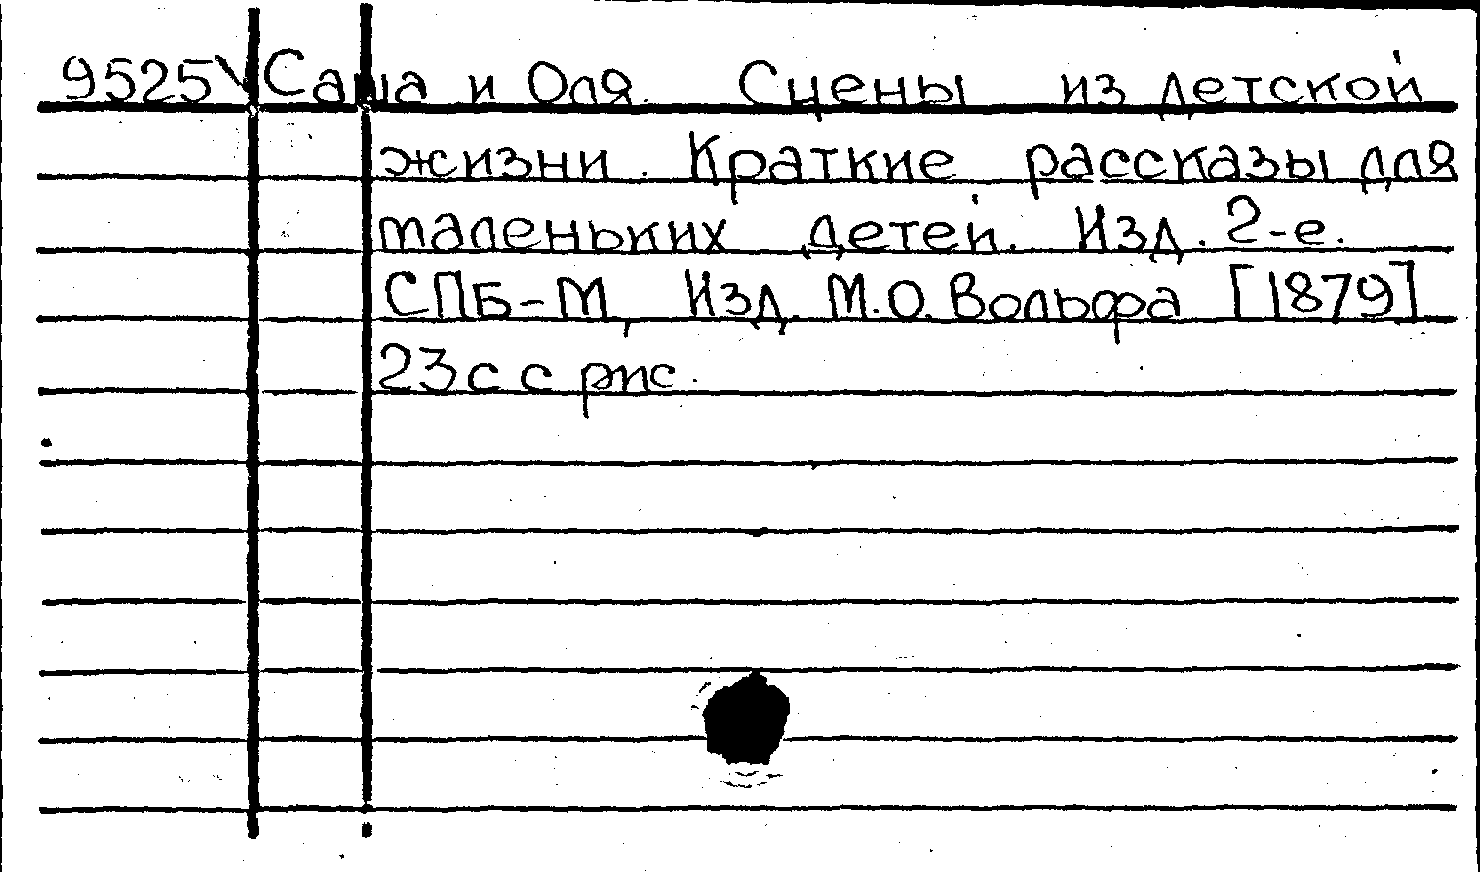 9525\ Саша и Оля. Сцены из детской
жизни. Краткие рассказы для
маленьких детей. Изд. 2-е.
СПБ-М, Изд. М.О. Вольфа [1879]
23с с рис.